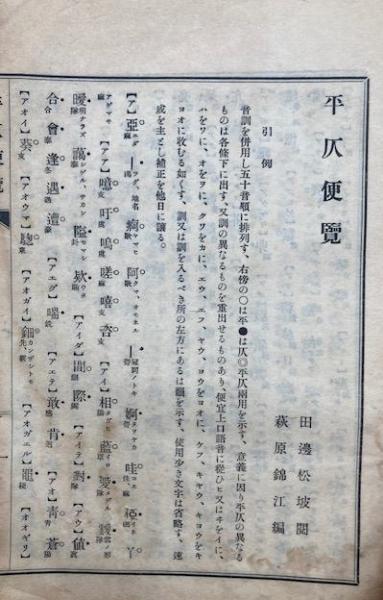 平仄便覽
田邊松坡閱
萩原錦江編
引例
音訓を併用し五十音順に排列す、右傍の○は平●は仄◎平仄兩用を示す、意義に因り平仄の異なる
ものは各條下に出す、又訓の異なるものを重出せるものあり、便宜上口語音に從ひヒ又はヰをイに、
ハをワに、オをヲに、クワをカに、エウ、エフ、ヤウ、ヨウをヨオに、ケフ、キヤウ、キヨウをキ
ヨオに收むる如くす、訓又は訓を入るべき所の左方にあるは韻を示す、使用少き文字は省略す、速
成を主とし補正を他日に讓る。
【ア】亞 阿 啞
【アア】噫 吁 嗚 嗟 嘻 【アイ】相 藍 愛
曖 藹 隘 【アイダ】間 際 【アイテ】對 【アウ】値
合 會 逢 遇 遭 【アエグ】喘 【アエテ】敢 肯 【アオ】靑 蒼
【アオイ】葵 【アオウマ】驄 【アオガイ】鈿 【アオガエル】 【アオギリ】